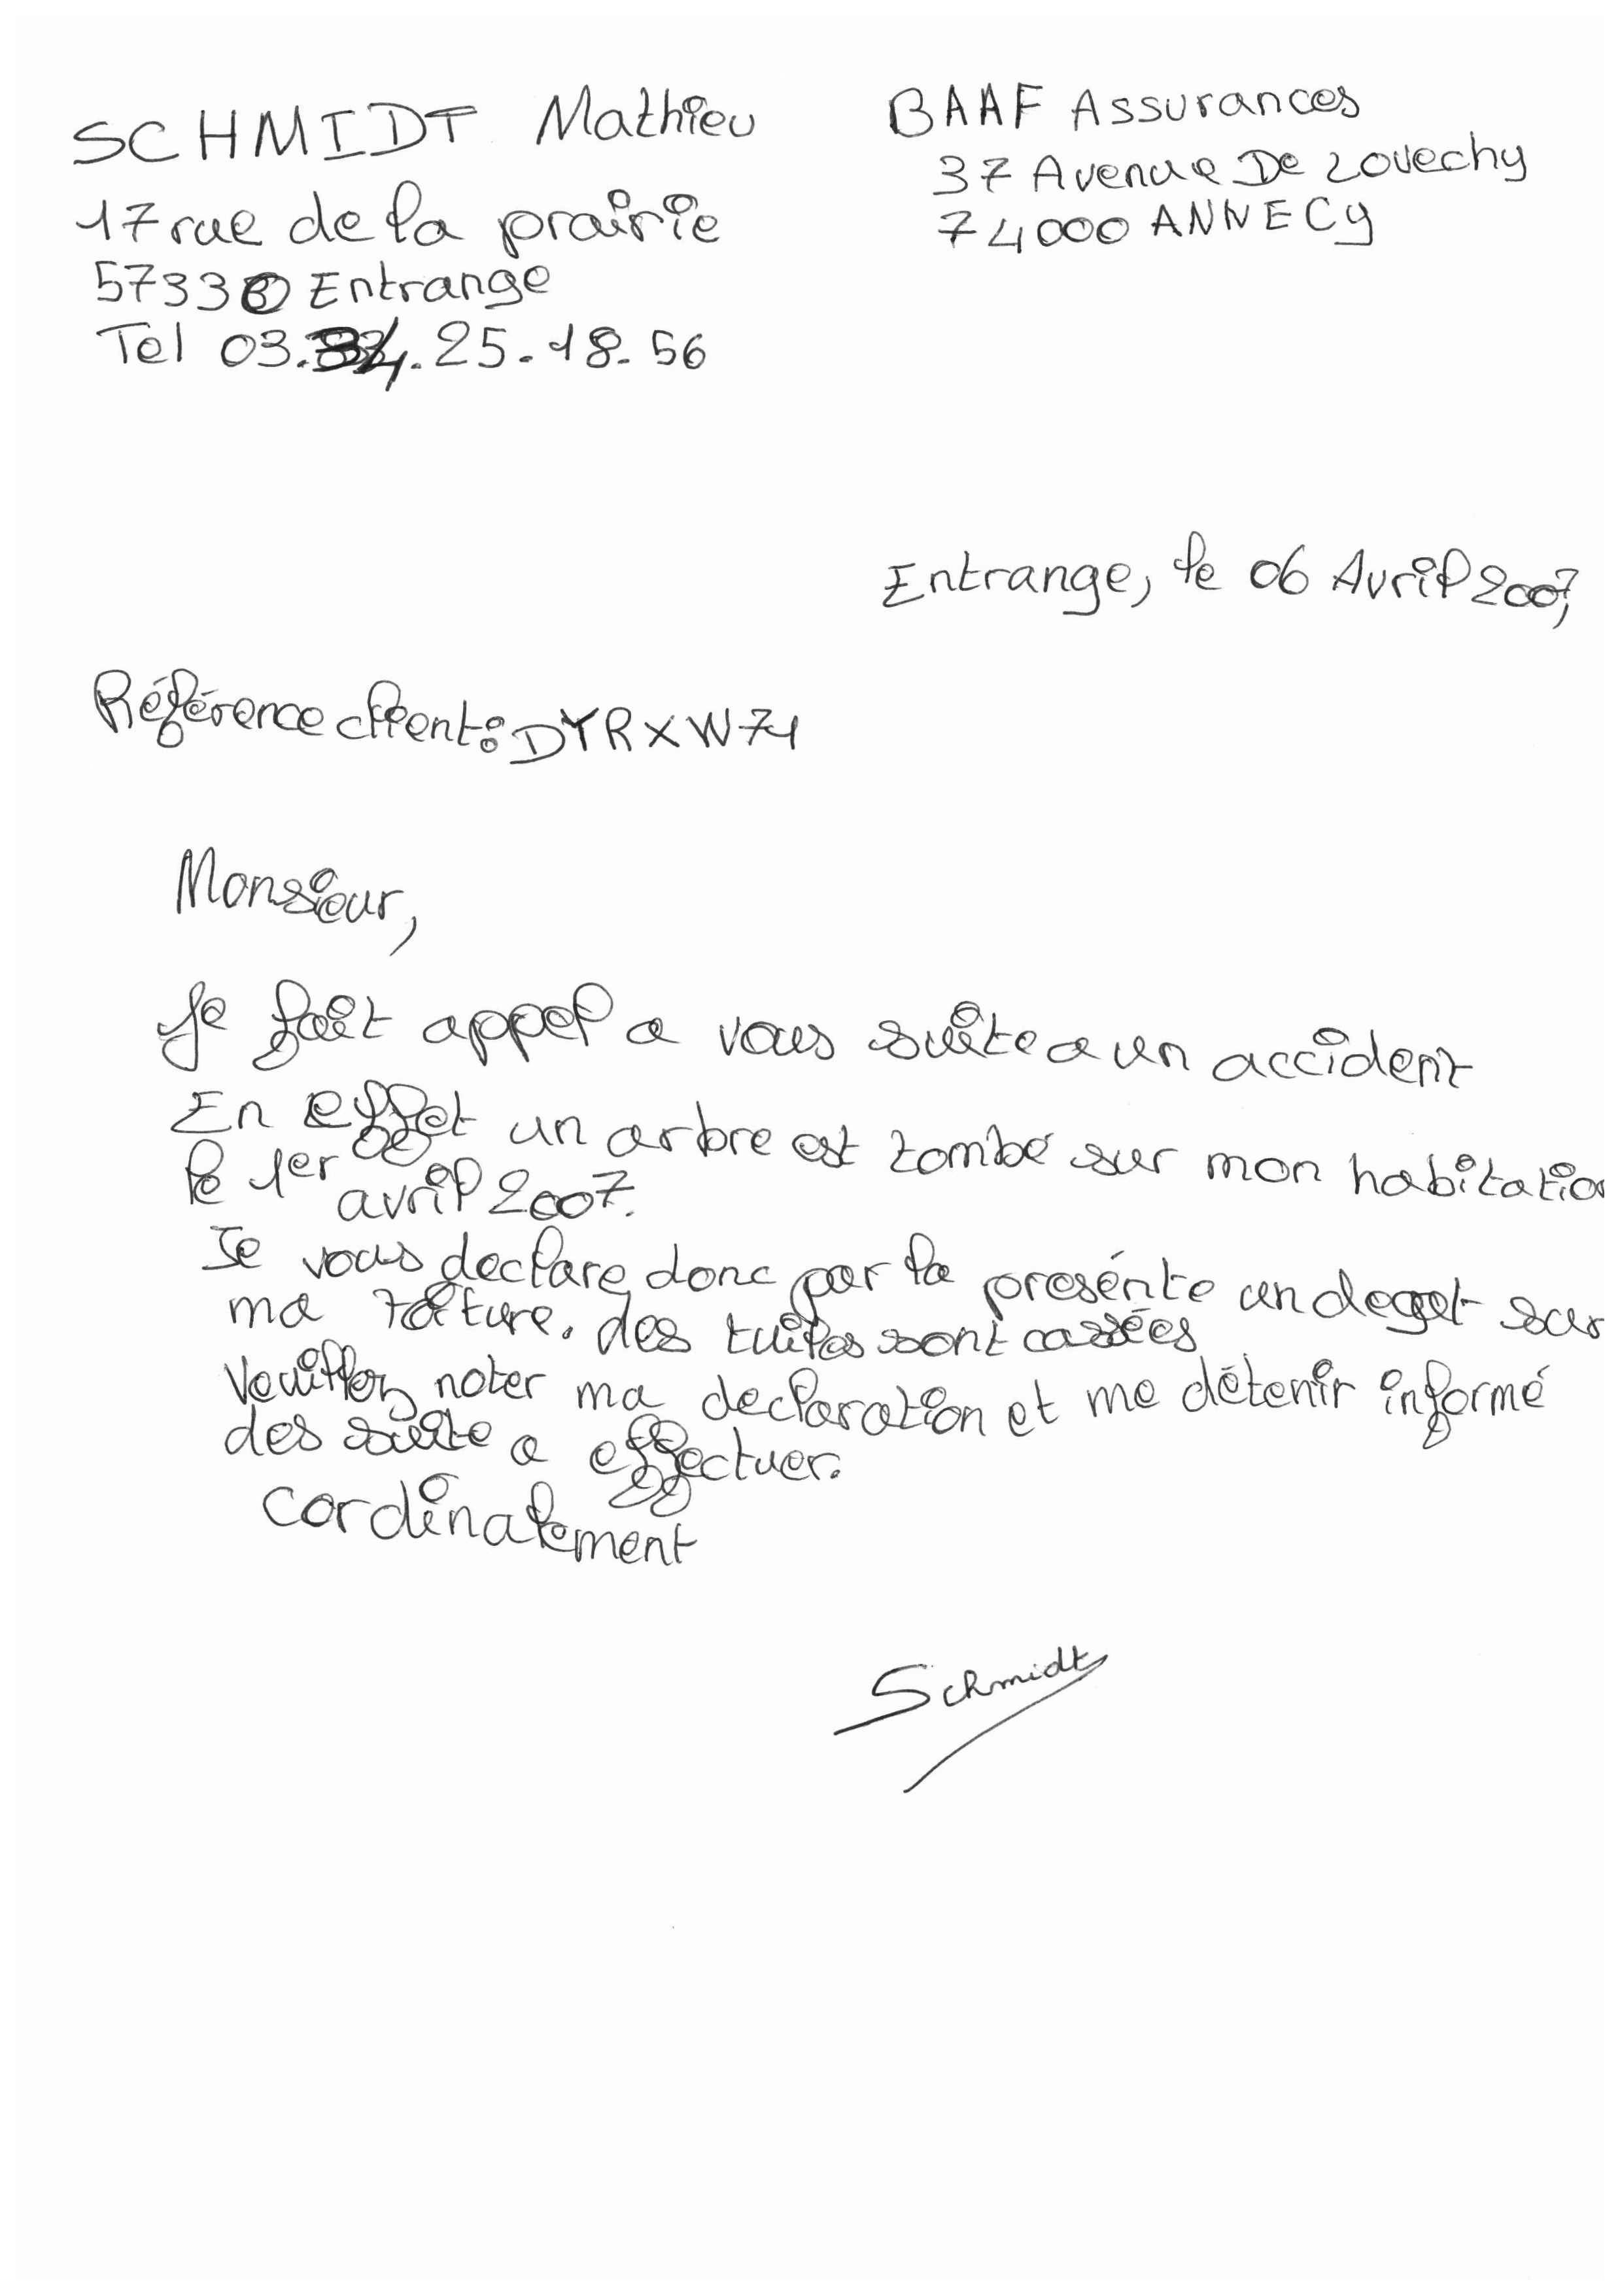 SCHMIDT Mathieu
17 rue de la prairie
57330 Entrange
Tel 03.34.25.18.56
BAAF Assurances
37 Avenue De Lovechy
74000 ANNECY
Entrange, le 06 Avril 2007,
Référence client: DYRXW71
Monsieur,
Je fait appel a vous suite a un accident
En effet un arbre est tombé sur mon habitation
le 1er avril 2007.
Je vous declare donc par la presénte un deget sur
ma toiture. des tuiles sont cassées
Veuillez noter ma declaration et me détenir informé
des suite a effectuer.
Cordinalement
Schmidt